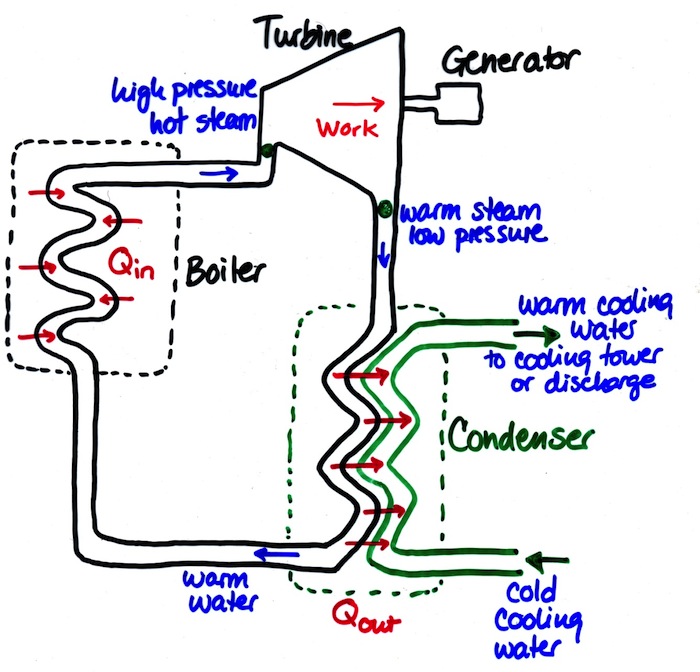 Turbine
Generator
high pressure
hot steam
Work
warm steam
low pressure
Qin
Boiler
warm cooling
water
to cooling tower
or discharge
Condenser
warm
water
Qout
cold
cooling
water